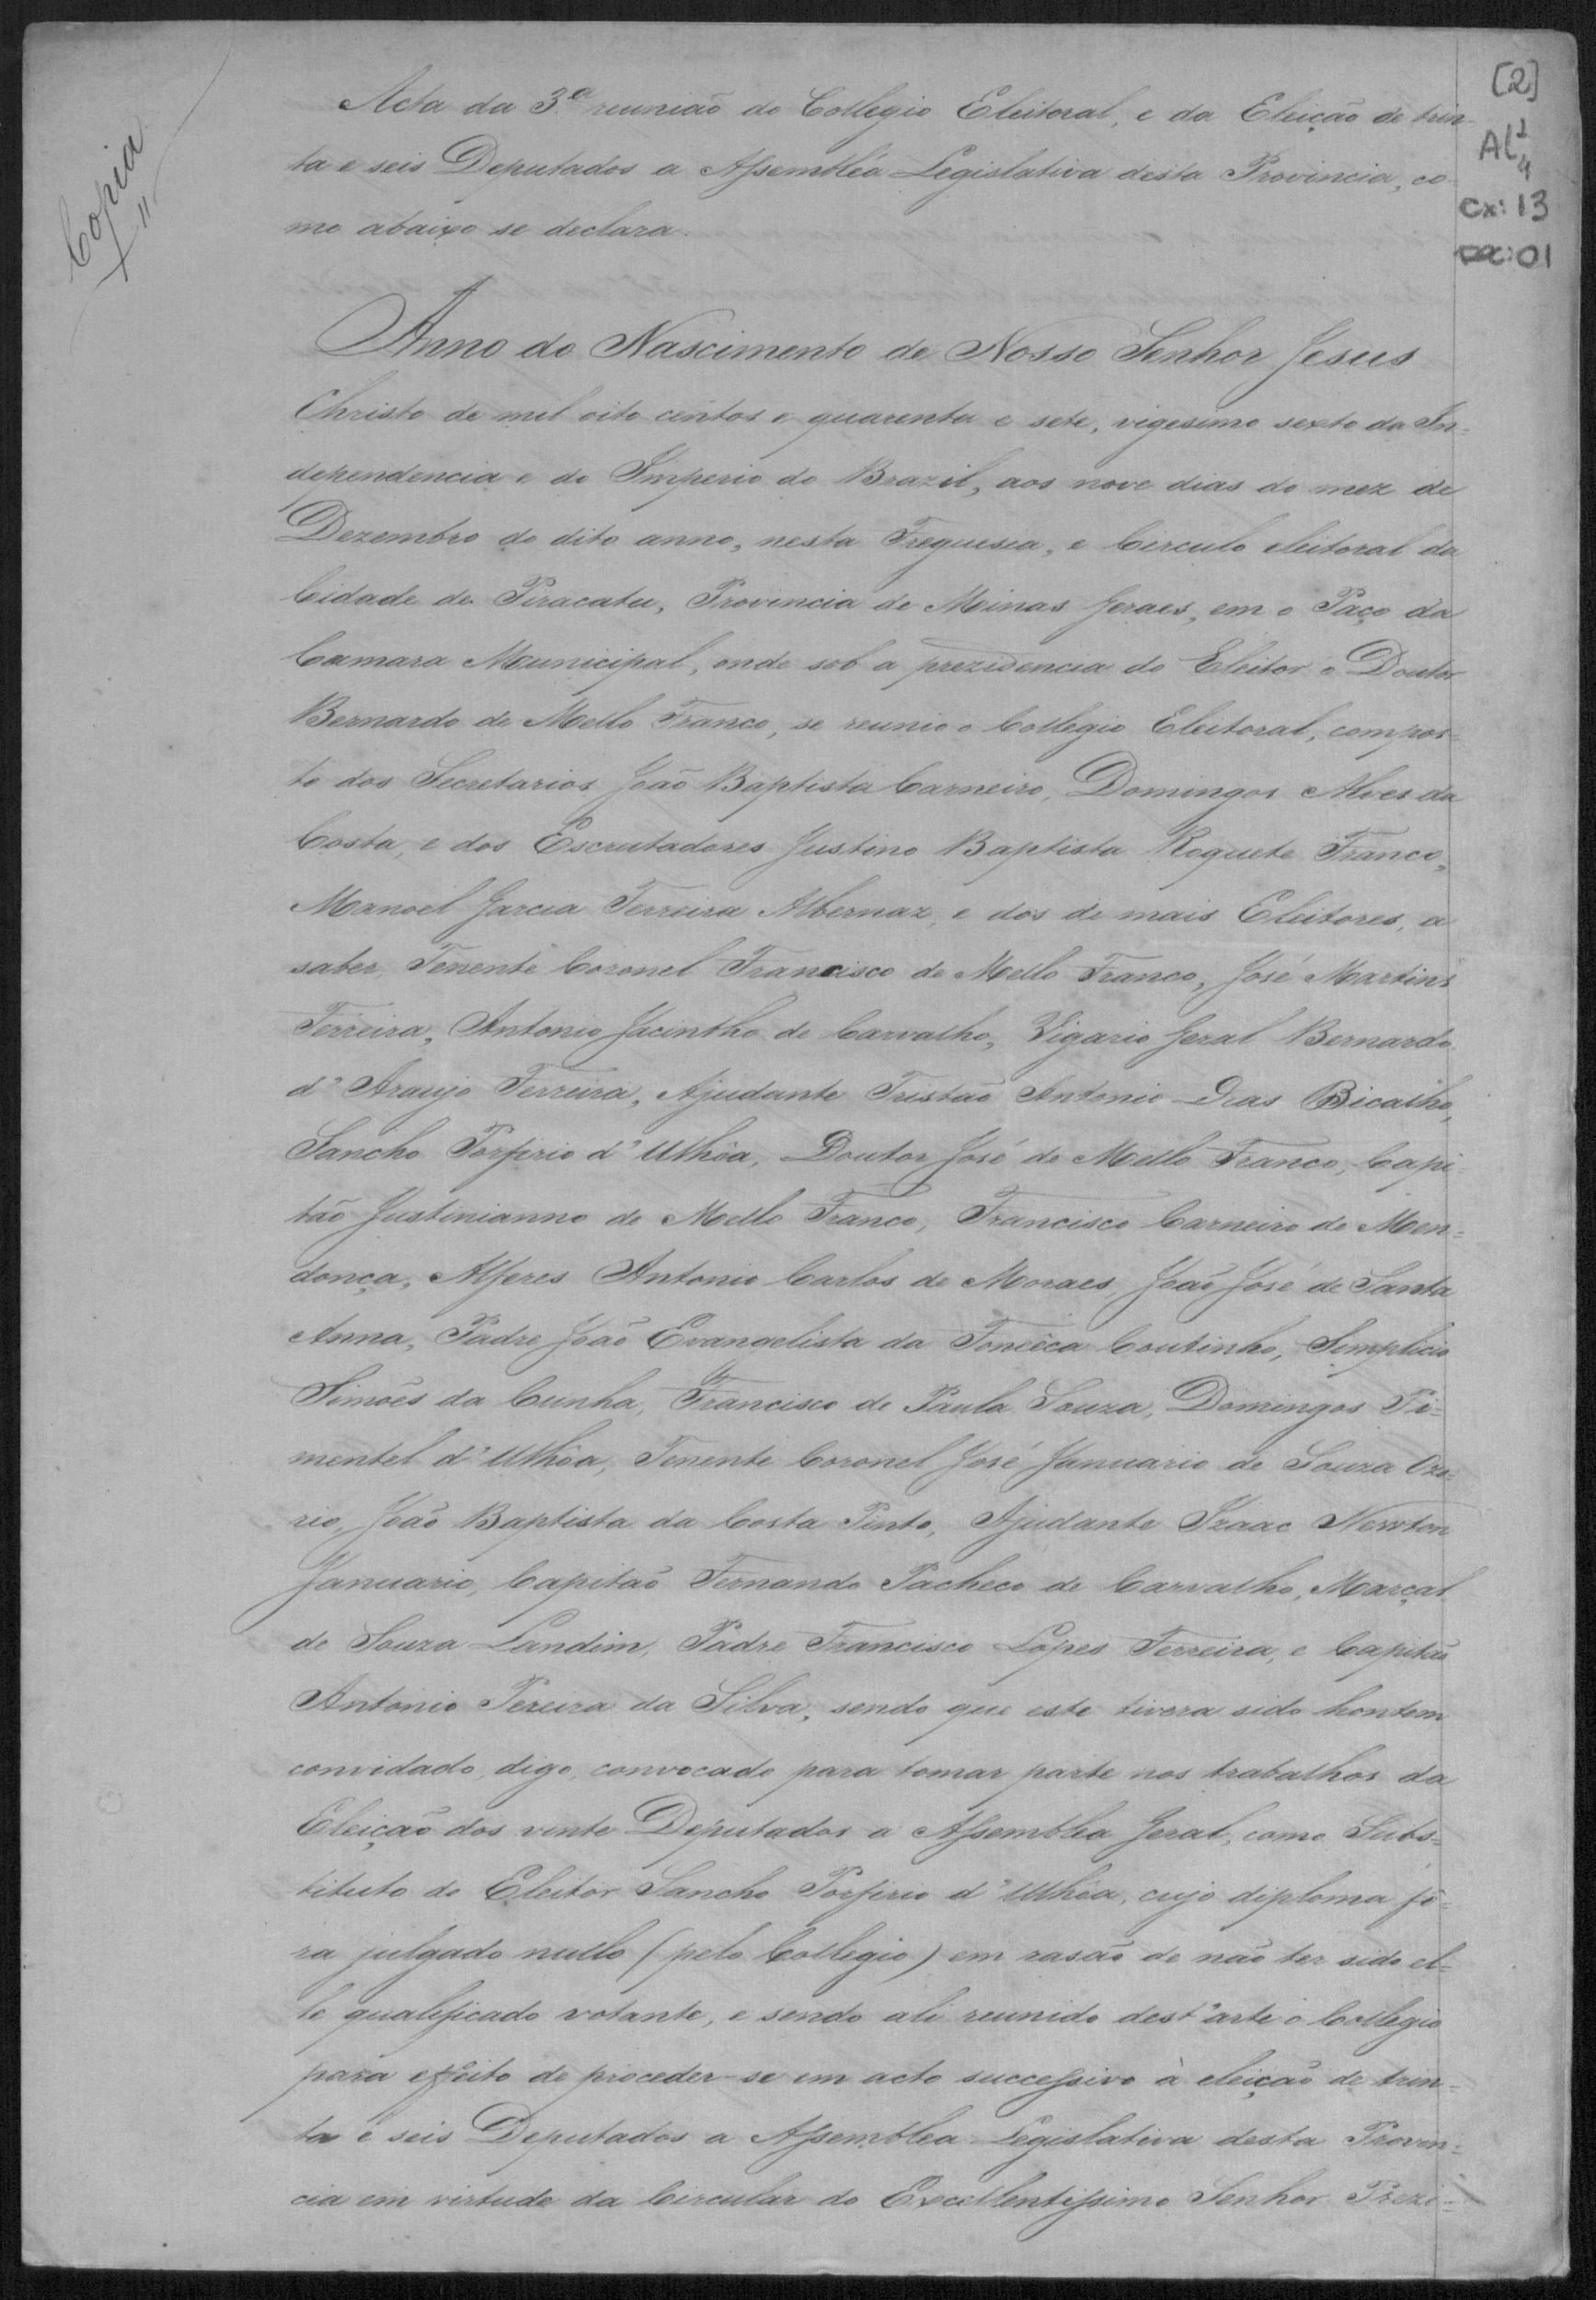 Copia
[2]
AL 1 4
cx: 13
cx: 01
Acta da 3.ª reunião do Collegio Eleitoral, e da Eleição de trin-
ta e seis Deputados a Assembléa Legislativa desta Provincia, co-
mo abaixo se declara.
Anno do Nascimento de Nosso Senhor Jesus
Christo de mil oito centos e quarenta e sete, vigesimo sexto da In=
dependencia e do Imperio do Brazil, aos nove dias do mez de
Dezembro do dito anno, nesta Freguesia, e Circulo eleitoral da
Cidade de Piracatu, Provincia de Minas Geraes, em o Paço da
Camara Municipal, onde sob a prezidencia do Eleitor o Doutor
Bernardo de Mello Franco, se reunio o Collegio Eleitoral, compos=
to dos Secretarios João Baptista Carneiro, Domingos Alves da
Costa, e dos Escrutadores Justino Baptista Roquete Franco,
Manoel Garcia Ferreira Albernaz, e dos de mais Eleitores, a
saber, Tenente Coronel Francisco de Mello Franco, José Martins
Ferreira, Antonio Jacintho de Carvalho, Vigario Geral Bernardo
d'Araujo Ferreira, Ajudante Tristão Antonio Dias Bicalho,
Sancho Porfirio d'Ulhôa, Doutor José de Mello Franco, Capi-
tão Justinianno de Mello Franco, Francisco Carneiro de Men=
donça, Alferes Antonio Carlos de Moraes, João José de Santa
Anna, Padre João Evangelista da Fonsêca Coutinho, Simplicio
Simões da Cunha, Francisco de Paula Souza, Domingos Pi=
mentel d'Ulhôa, Tenente Coronel José Januario de Souza Ozo=
rio, João Baptista da Costa Pinto, Ajudante Izaac Newton
Januario, Capitão Fernando Pacheco de Carvalho, Marçal
de Souza Landim, Padre Francisco Lopes Ferreira, e Capitão
Antonio Pereira da Silva, sendo que este tivera sido hontem
convidado, digo, convocado para tomar parte nos trabalhos da
Eleição dos vinte Deputados a Assembléa Geral, como Subs=
tituto do Eleitor Sancho Porfirio d'Ulhôa, cujo diploma fô=
ra julgado nullo (pelo Collegio) em rasão de não ter sido el=
le qualificado votante, e sendo ali reunido dest'arte o Collegio
para effeito de proceder-se em acto successivo à eleição de trin-
ta e seis Deputados a Assembléa Legislativa desta Provin=
cia em virtude da Circular do Excellentissimo Senhor Prezi=